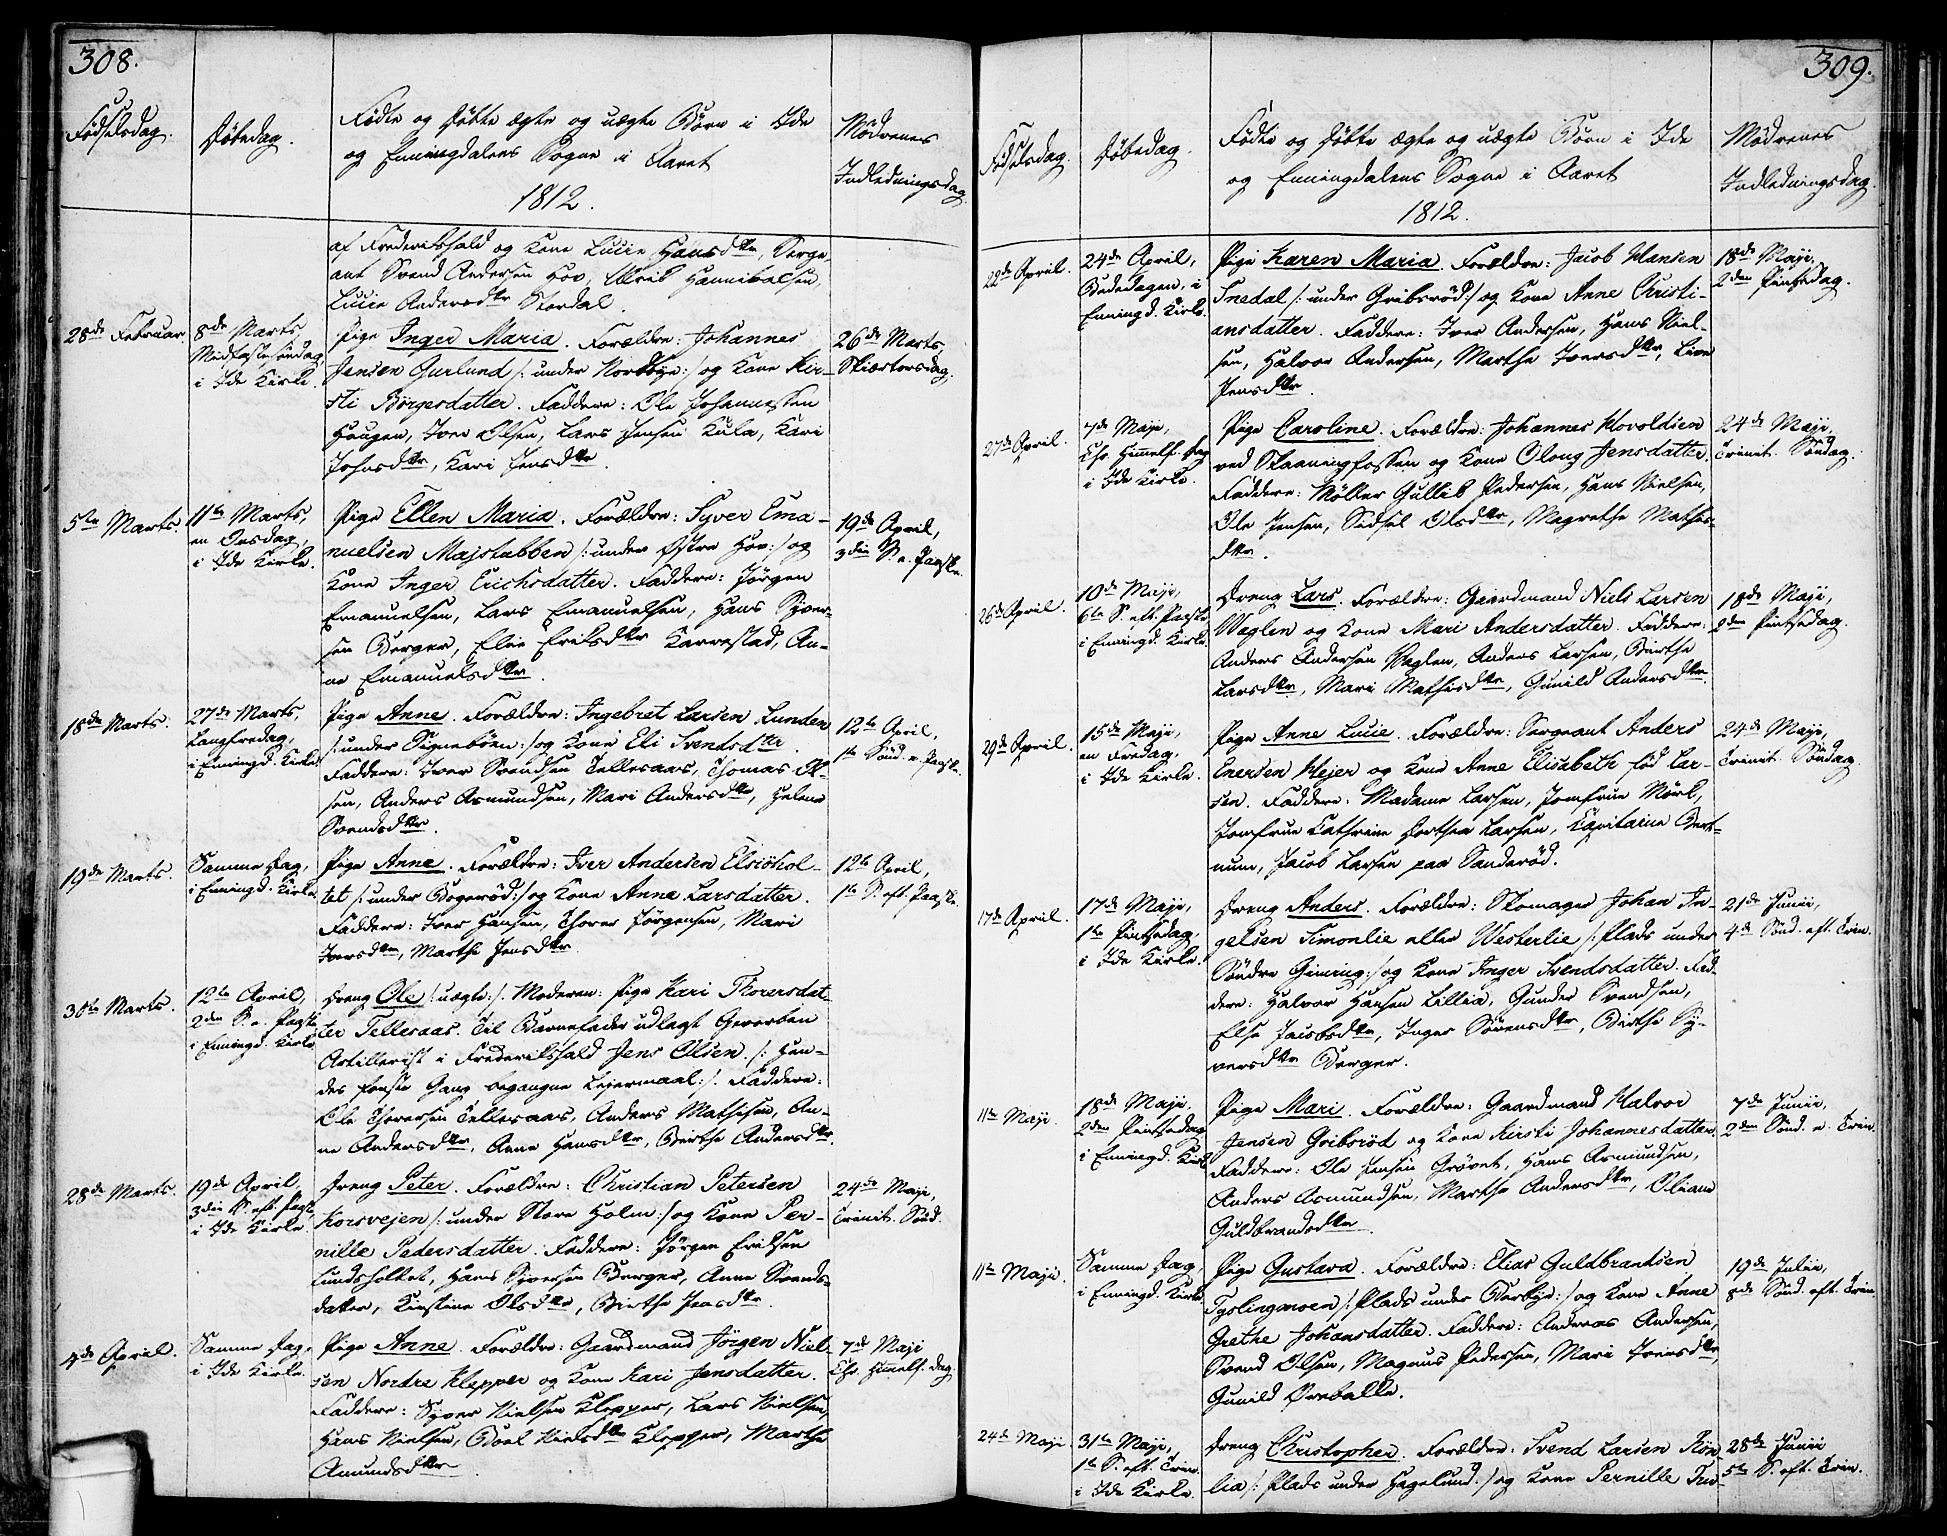 308.
Födselsdag.
Döbedag.
Födte og döbte ægte og uægte Börn i Ide
og Enningdalens Sogne i Aaret
1812.
Mödrenes
Indledningsdag.
af Frederikshald og Kone Lucie Hansdtr, Serge-
ant Svend Andersen Hov, Ulrik Hannibalsen,
Lucie Andersdtr Stordal.
28de Februar.
8de Marts,
Midfastesöndag
i Ide Kirke.
Pige Inger Maria. Forældre: Johannes
Jensen Gurlund /: under Nordbye :/ og Kone Kir-
sti Börgesdatter. Faddere: Ole Johannessen
Haugen, Iver Olsen, Lars Jensen Kula, Kari
Johnsdtr, Kari Jensdtr.
26de Marts,
Skiærtorsdag.
5te Marts.
11te Marts,
en Onsdag,
i Ide Kirke.
Pige Ellen Maria. Forældre: Syver Ema-
nuelsen Majstubben /: under Östre Hov :/ og
Kone Inger Erichsdatter. Faddere: Jörgen
Emanuelsen, Lars Emanuelsen, Hans Syver-
sen Berger, Elin Eriksdtr Karrestad, An-
ne Emanuelsdtr.
19de April,
3die S. e. Paaske.
18de Marts.
27de Marts,
Langfredag,
i Enningd. Kirke.
Pige Anne. Forældre: Ingebret Larsen Lunden
/: under Signeböen :/ og Kone Eli Svendsdtr.
Faddere: Iver Svendsen Tellesaas, Thomas Ol-
sen, Anders Asmundsen, Mari Andersdtr, Helene
Svendsdtr.
12te April,
1te Sönd. e. Paaske.
19de Marts.
Samme Dag,
i Enningd. Kirke.
Pige Anne. Forældre: Iver Andersen Elsiöhol-
tet /: under Bogerød :/ og Kone Anne Larsdatter.
Faddere: Iver Hansen, Thorer Jörgensen, Mari
Iversdtr, Marthe Jensdtr.
12te April,
1te S. eft. Paaske.
30te Marts.
12te April,
2den S. e. Paaske
i Enningd. Kirke.
Dreng Ole /: uægte :/. Moderen: Pige Kari Thorersdat-
ter Tellesaas. Til Barnefader udlagt Gevorben
Artillerist i Frederikshald Jens Olsen. /: Hen-
des förste Gang begangne Lejermaal :/. Faddere:
Ole Thorersen Tellesaas, Anders Mathisen, An-
ne Andersdtr, Anne Hansdtr, Birthe Andersdtr.
28de Marts.
19de April,
3die S. eft. Paask.
i Ide Kirke.
Dreng Peter. Forældre: Christian Petersen
Korsvejen /: under Store Holm :/ og Kone Per-
nille Pedersdatter. Faddere: Jörgen Eriksen
Lundsholtet, Hans Syversen Berger, Anne Svends-
datter, Kirstine Olsdtr, Birthe Jensdtr.
24de Maji,
Trinit. Sönd.
4de April.
Samme Dag,
i Ide Kirke.
Pige Anne. Forældre: Gaardmand Jörgen Niel-
sen Nordre Klepper og Kone Kari Jensdatter.
Faddere: Syver Nielsen Klepper, Lars Nielsen,
Hans Nielsen, Boel Nielsdtr Klepper, Marthe
Amundsdtr.
7de Maji
Chr. Himmelf. Dag.
309.
Födselsdag.
Döbedag.
Födte og döbte ægte og uægte Börn i Ide
og Enningdalens Sogne i Aaret
1812.
Mödrenes
Indledningsdag.
22de April.
24de April,
Bededagen, i
Enningd. Kirke.
Pige Karen Maria. Forældre: Jacob Hansen
Snedal /: under Gribsröd :/ og Kone Anne Christi-
ansdatter. Faddere: Iver Andersen, Hans Niel-
sen, Halvor Andersen, Marthe Iversdtr, Live
Jensdtr.
18de Maji,
2den Pintsedag.
27de April.
7de Maji,
Chr. Himmelf. Dag
i Ide Kirke.
Pige Caroline. Forældre: Johannes Hovoldsen
ved Skaaningfossen og Kone Oloug Jensdatter.
Faddere: Möller Gullik Pedersen, Hans Nielsen,
Ole Jensen, Sidsel Olsdtr, Magrethe Mathis-
dtr.
24de Maji,
Trinit. Söndag.
26de April.
10de Maji,
6te S. eft. Paaske
i Enningd. Kirke.
Dreng Lars. Forældre: Gaardmand Niels Larsen
Waglen og Kone Mari Andersdatter. Faddere:
Anders Andersen Waglen, Anders Larsen, Birthe
Larsdtr, Mari Mathisdtr, Gunild Andersdtr.
18de Maji,
2den Pintsedag.
29de April.
15de Maji,
en Fredag,
i Ide Kirke.
Pige Anne Lucie. Forældre: Sergeant Anders
Enersen Hejer og Kone Anne Elisabeth fød Lar-
sen. Faddere: Madame Larsen, Jomfrue Mörk,
Jomfrue Cathrine Dorthea Larsen, Capitaine Bert-
num, Jacob Larsen paa Sanderöd.
24de Maji,
Trinit. Söndag.
17de April.
17de Maji,
1te Pintsedag,
i Ide Kirke.
Dreng Anders. Forældre: Skomager Johan In-
gelsen Simonlie eller Westerlie /: Plads under
Söndre Gimring :/ og Kone Inger Svendsdatter. Fad-
dere: Halvor Hansen Lillia, Gunder Svendsen,
Else Jacobsdtr, Inger Sörensdtr, Birthe Sy-
versdtr Berger.
21de Junii,
4de Sönd. eft. Trin.
11te Maji.
18de Maji.
2den Pintsedag
i Enningd. Kirk.
Pige Mari. Forældre: Gaardmand Halvor
Jensen Gribsröd og Kone Kirsti Johannesdatter.
Faddere: Ole Jensen Grövet, Hans Asmundsen,
Anders Asmundsen, Marthe Andersdtr, Oliane
Guldbrandsdtr.
7de Junii,
2den Sönd. e. Trin.
11te Maji.
Samme Dag,
i Enningd. Kirke.
Pige Gustava. Forældre: Elias Guldbrandsen
Tyslingmoen /: Plads under Berbye :/ og Kone Anne
Grethe Johansdatter. Faddere: Andreas Andersen,
Svend Olsen, Magnus Pedersen, Mari Iversdtr,
Gunild Örebakke.
19de Julii,
8de Sönd. eft. Trin.
24de Maji.
31te Maji,
1te S. eft. Trin.
i Ide Kirke.
Dreng Christopher. Forældre: Svend Larsen Rön-
lia /: Plads under Hagelund :/ og Kone Pernille Tru-
28de Junii
5te S. eft. Trin.